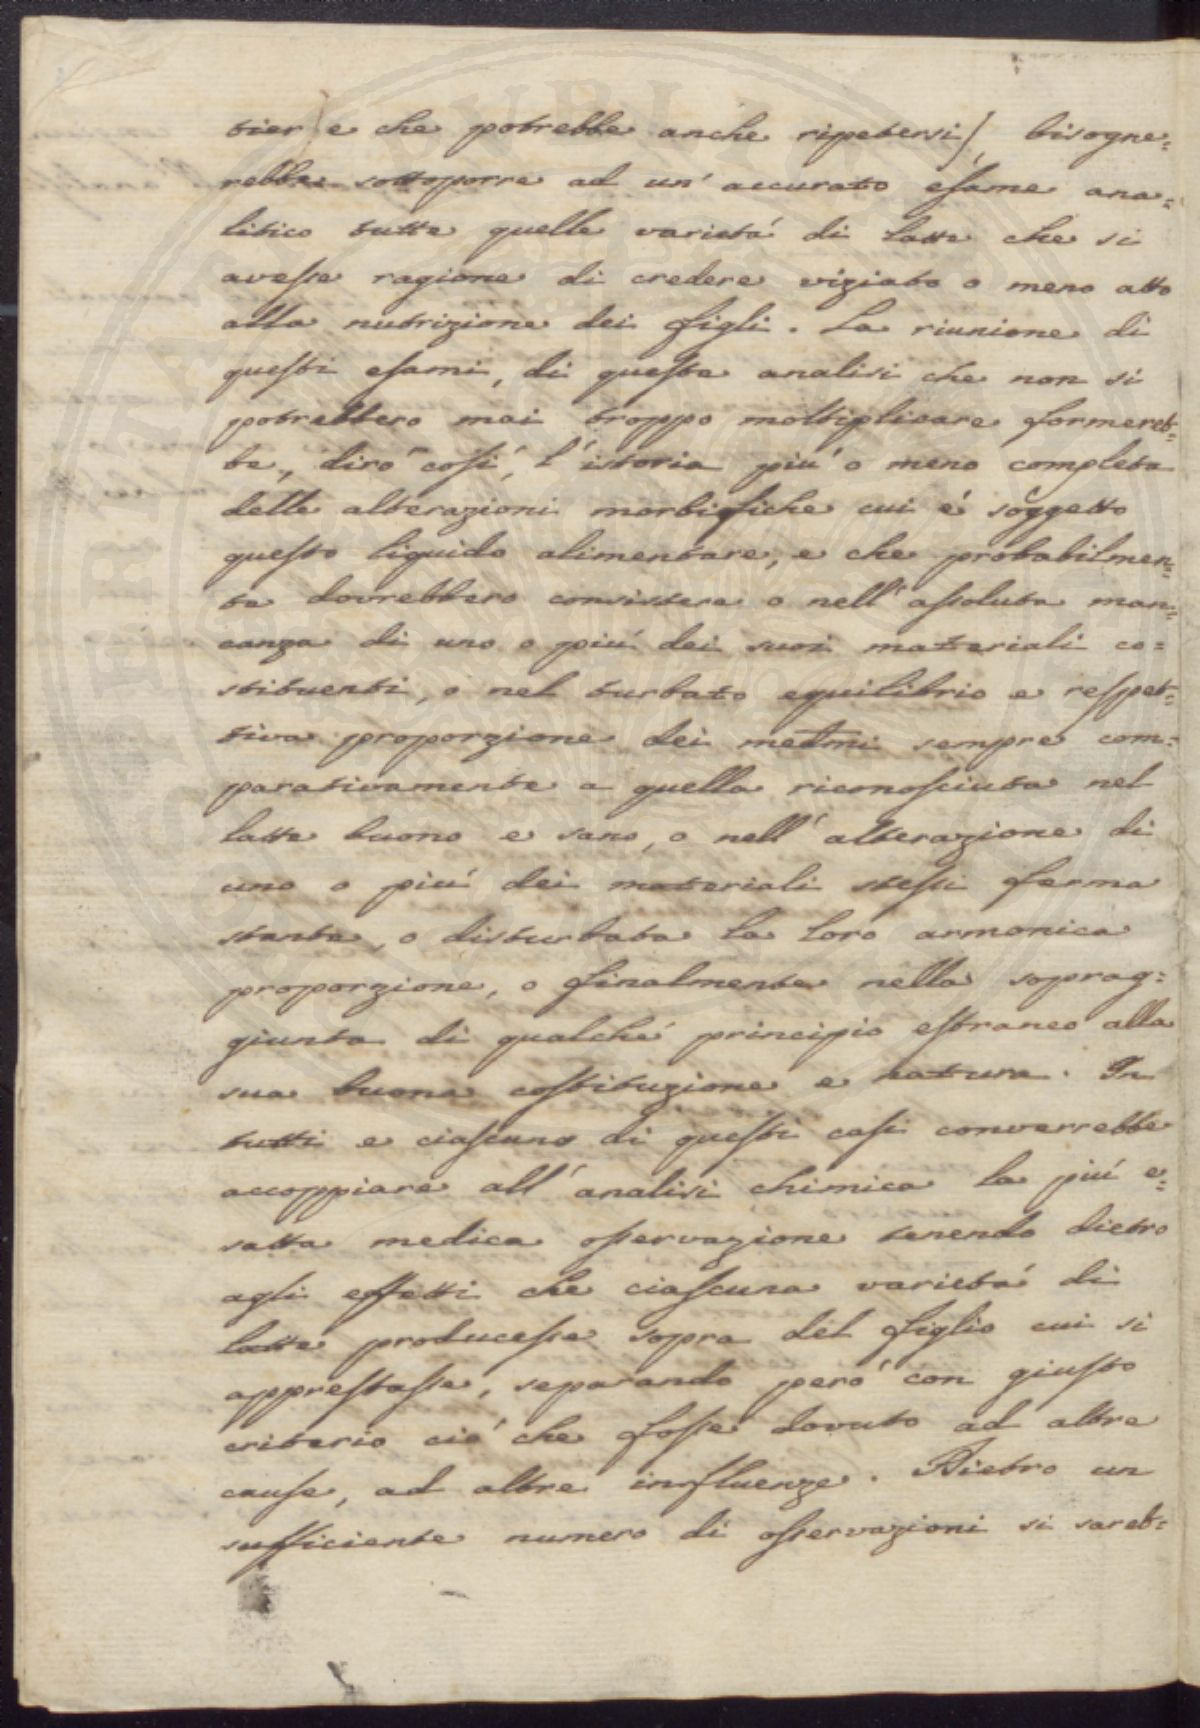 tier) e che potrebbe anche ripetersi), bisogne=
rebbe sottoporre ad un' accurato esame ana=
litico tutte quelle varietá di latte che si
avesse ragione di credere viziato o meno atto
alla nutrizione dei figli. La riunione di
questi esami, di queste analisi che non si
potrebbero mai troppo moltiplicare formereb=
be, diró cosí, l'istoria piú o meno completa
delle alterazioni morbifiche cui é soggetto
questo liquido alimentare, e che probabilmen=
te dovrebbero consistere o nell' assoluta man=
canza di uno o piú dei suoi materiali co=
stituenti, o nel turbato equilibrio e respet=
tiva proporzione dei medmi sempre com=
parativamente a quella riconosciuta nel
latte buono e sano, o nell' alterazione di
uno o piú dei materiali stessi ferma
stante, o disturbata la loro armonica
proporzione, o finalmente nella soprag=
giunta di qualche principio estraneo alla
sua buona costituzione e natura. In
tutti e ciascuno di questi casi converrebbe
accoppiare all' analisi chimica la piú e=
satta medica osservazione tenendo dietro
agli effetti che ciascuna varietá di
latte producesse sopra del figlio cui si
apprestasse, separando peró con giusto
criterio ció che fosse dovuto ad altre
cause, ad altre influenze. Dietro un
sufficiente numero di osservazioni si sareb=